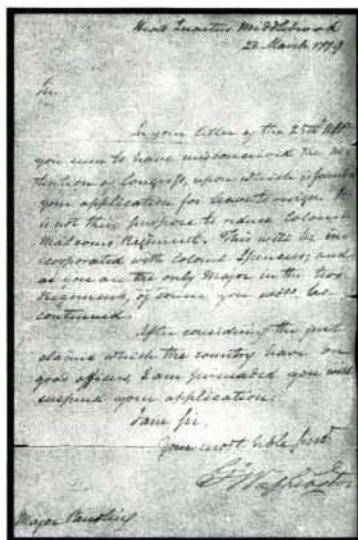 Head Quarters Middlebrook
22 March 1779
Sir
In your letter of the 25th Ult.
you seem to have misconceived the in-
tention of Congress, upon which is founded
your application for leave to resign. It
is not their purpose to reduce Colonel
Malcoms Regiment. This will be in-
corporated with Colonel Spencers, and
as you are the only Major in the two
Regiments, of course you will be
continued.
After considering the just
claims which the country have on
good officers, I am persuaded you will
suspend your application.
I am Sir.
Your most hble servt
Go Washington
Major Pawling